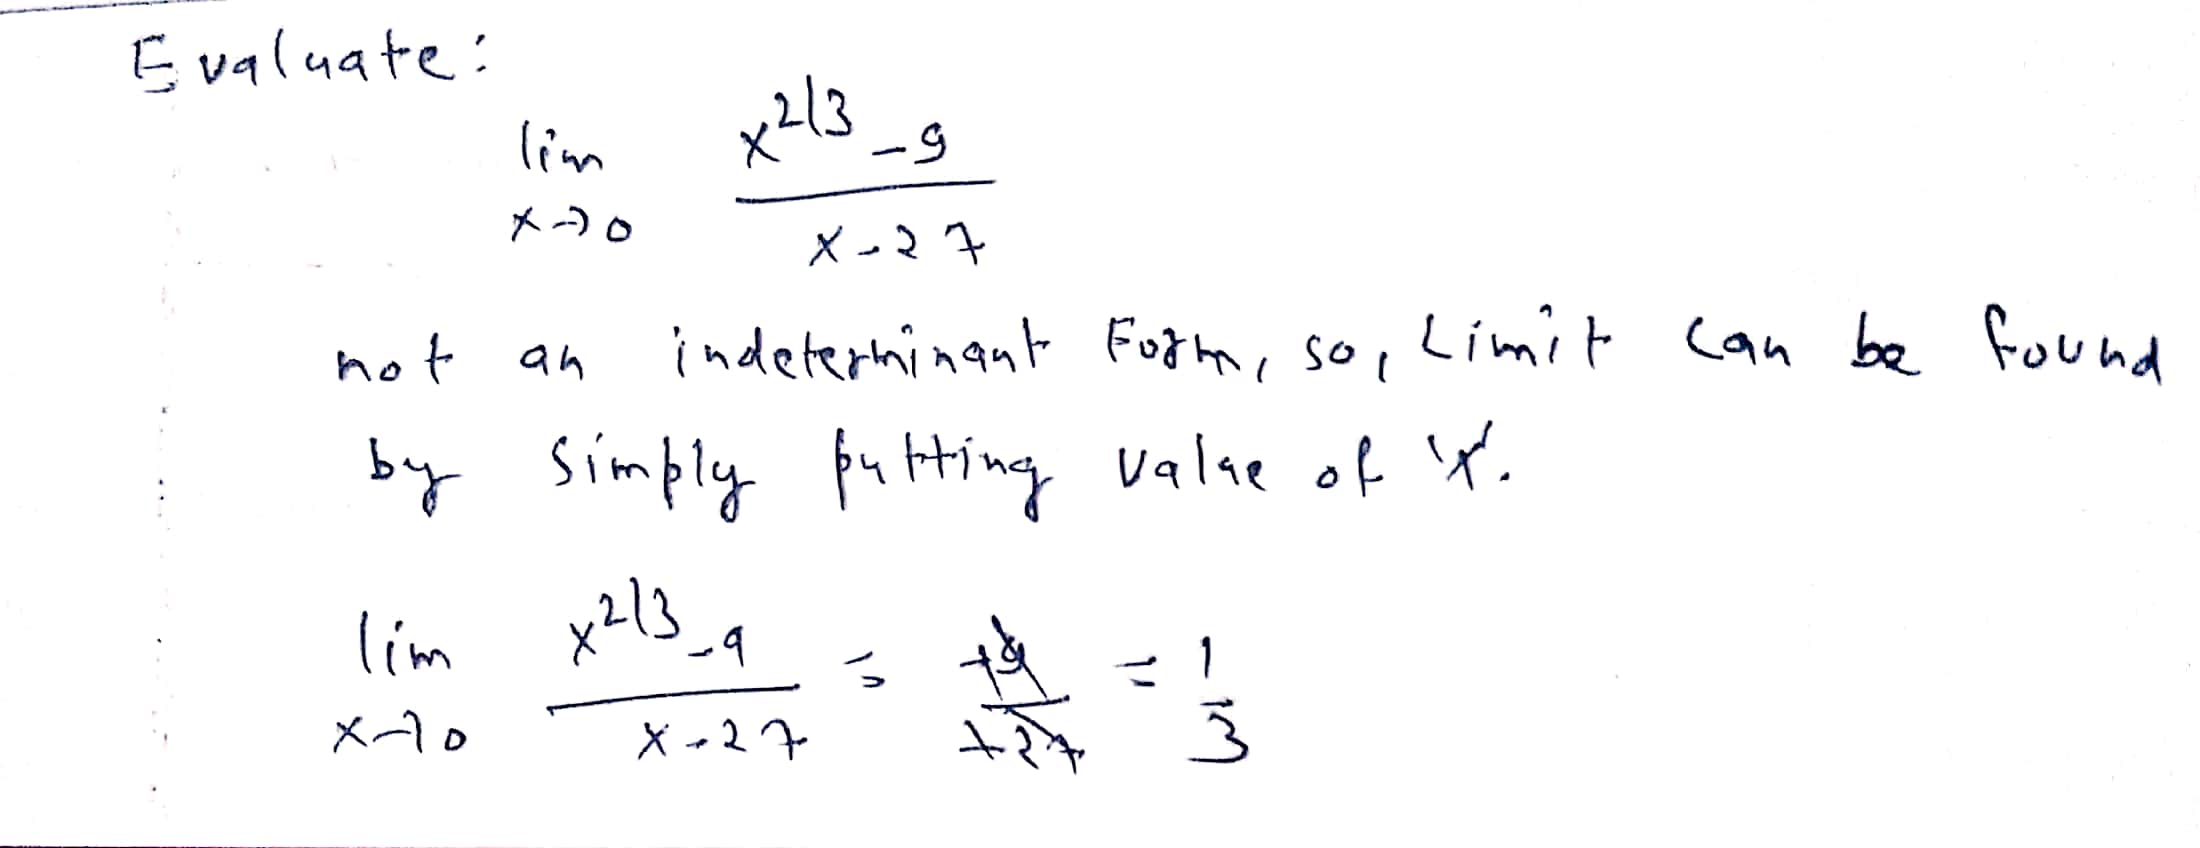 Evaluate:
lim x^2/3 - 9
x→0 x - 27
not an indeterminant Form, so, Limit can be found
by simply putting value of 'x'.
lim x^2/3 - 9 = -9 = 1
x→0 x - 27 -27 3